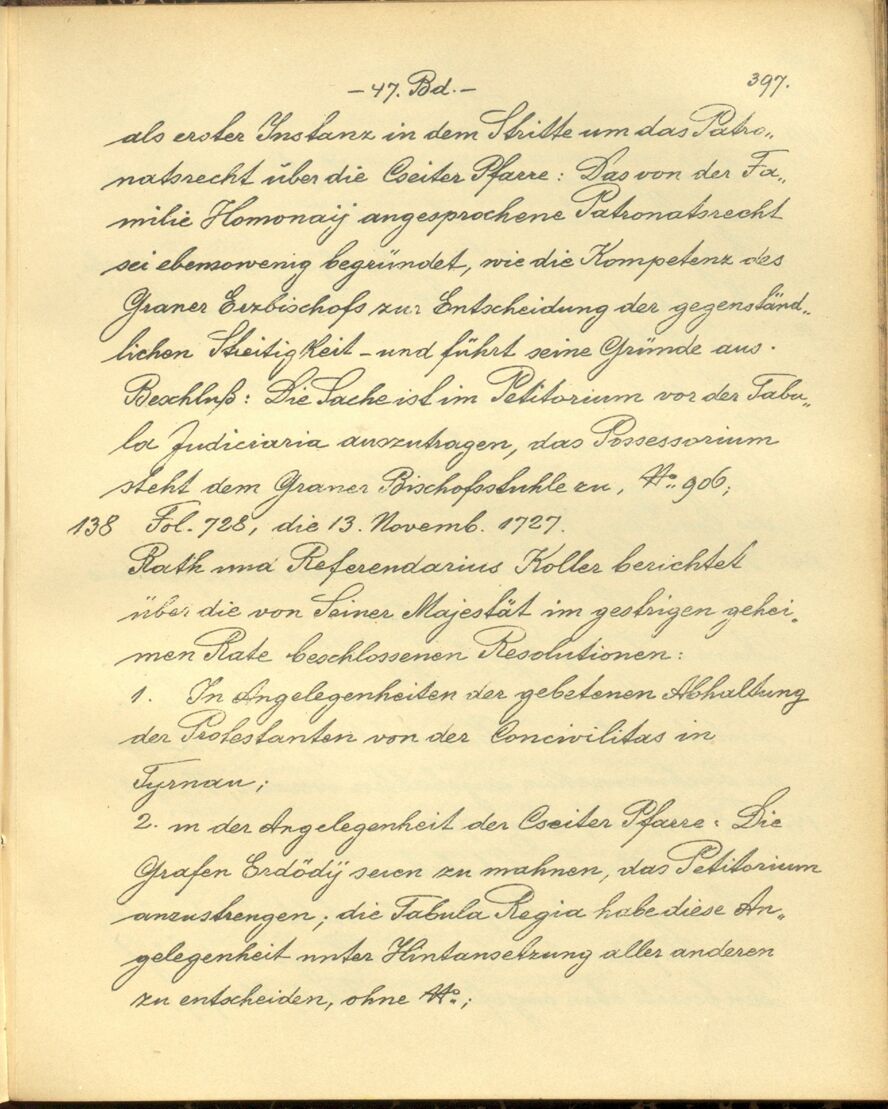 – 47. Bd. –
397.
als erster Instanz in dem Stritte um das Patro„
natsrecht über die Cseiter Pfarre: Das von der Fa„
milie Homonaij angesprochene Patronatsrecht
sei ebensowenig begründet, wie die Kompetenz des
Graner Erzbischofs zur Entscheidung der gegenständ„
lichen Streitigkeit – und führt seine Gründe aus.
Beschluß: Die Sache ist im Petitorium vor der Tabu„
la Judiciaria auszutragen, das Possessorium
steht dem Graner Bischofsstuhle zu, No. 906;
138 Fol. 728, die 13. Novemb. 1727.
Rath und Referendarius Koller berichtet
über die von Seiner Majestät im gestrigen gehei„
men Rate beschlossenen Resolutionen:
1. In Angelegenheiten der gebetenen Abhaltung
der Protestanten von der Concivilitas in
Tyrnau;
2. in der Angelegenheit der Cseiter Pfarre: Die
Grafen Erdödÿ seien zu mahnen, das Petitorium
anzustrengen; die Tabula Regia habe diese An„
gelegenheit unter Hintansetzung aller anderen
zu entscheiden, ohne No.;